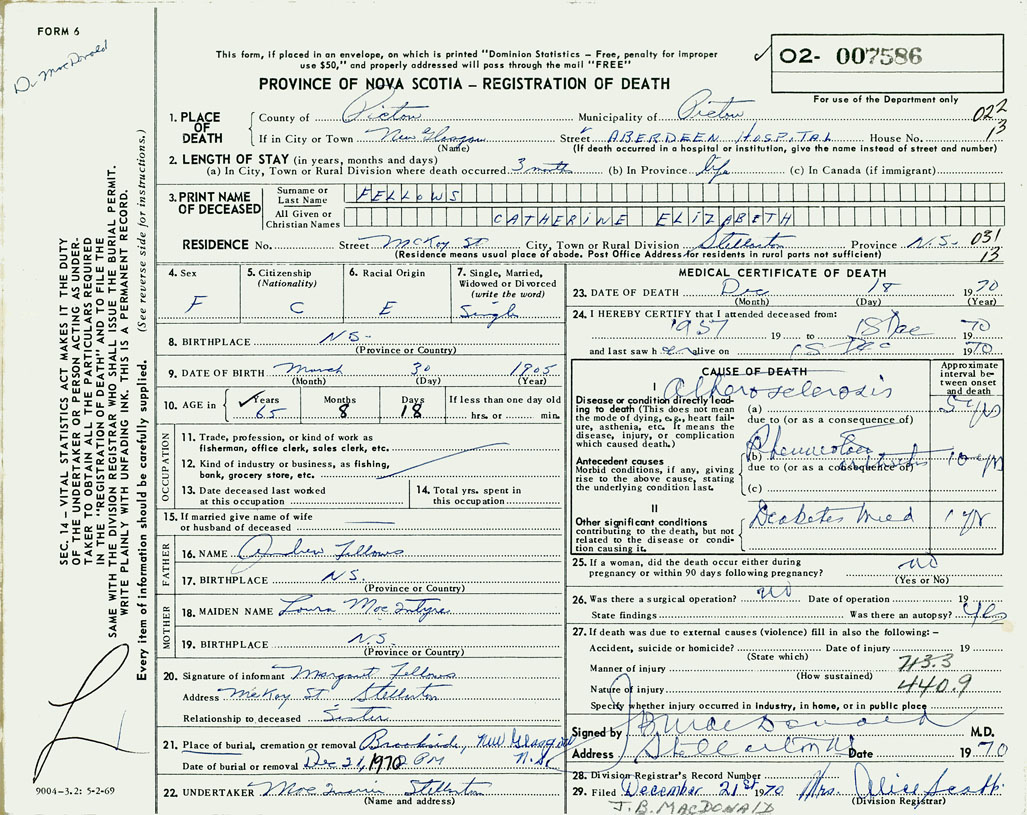 FORM 6
Dr MacDonald
This form, if placed in an envelope, on which is printed "Dominion Statistics – Free, penalty for improper
use $50," and properly addressed will pass through the mail "FREE"
PROVINCE OF NOVA SCOTIA – REGISTRATION OF DEATH
✓ 02- 007586
For use of the Department only
1. PLACE OF DEATH
County of Pictou Municipality of Pictou 022
If in City or Town New Glasgow Street ABERDEEN HOSPITAL House No. 13
(Name) (If death occurred in a hospital or institution, give the name instead of street and number)
2. LENGTH OF STAY (in years, months and days)
(a) In City, Town or Rural Division where death occurred 3 mths (b) In Province life (c) In Canada (if immigrant)
3. PRINT NAME OF DECEASED
Surname or Last Name FELLOWS
All Given or Christian Names CATHERINE ELIZABETH
RESIDENCE No. Street McKay St City, Town or Rural Division Stellarton Province N.S. 031
(Residence means usual place of abode. Post Office Address for residents in rural parts not sufficient) 13
4. Sex F
5. Citizenship (Nationality) C
6. Racial Origin E
7. Single, Married, Widowed or Divorced (write the word) Single
8. BIRTHPLACE N S -
(Province or Country)
9. DATE OF BIRTH March 30 1905
(Month) (Day) (Year)
10. AGE in ✓ Years 65 Months 8 Days 18 If less than one day old hrs. or min.
OCCUPATION
11. Trade, profession, or kind of work as fisherman, office clerk, sales clerk, etc.
12. Kind of industry or business, as fishing, bank, grocery store, etc.
13. Date deceased last worked at this occupation
14. Total yrs. spent in this occupation
15. If married give name of wife or husband of deceased
FATHER
16. NAME Andrew Fellows
17. BIRTHPLACE N S.
(Province or Country)
MOTHER
18. MAIDEN NAME Laura MacIntyre
19. BIRTHPLACE N.S.
(Province or Country)
20. Signature of informant Margaret Fellows
Address McKay St Stellarton
Relationship to deceased Sister
21. Place of burial, cremation or removal Brookside, New Glasgow N.S.
Date of burial or removal Dec 21, 1970 PM
22. UNDERTAKER Stellarton
(Name and address)
MEDICAL CERTIFICATE OF DEATH
23. DATE OF DEATH Dec 18 1970
(Month) (Day) (Year)
24. I HEREBY CERTIFY that I attended deceased from:
1957 19 to 18 Dec 1970
and last saw h er alive on 18 Dec 1970
CAUSE OF DEATH
Approximate interval between onset and death
I
Atherosclerosis
Disease or condition directly leading to death (This does not mean the mode of dying, e.g., heart failure, asthenia, etc. It means the disease, injury, or complication which caused death.)
(a) 5 yrs
due to (or as a consequence of)
Rheumatoid
Antecedent causes
Morbid conditions, if any, giving rise to the above cause, stating the underlying condition last.
(b) 10 yrs
due to (or as a consequence of)
(c)
II
Other significant conditions contributing to the death, but not related to the disease or condition causing it.
Diabetes 1 yr
25. If a woman, did the death occur either during pregnancy or within 90 days following pregnancy? no
(Yes or No)
26. Was there a surgical operation? no Date of operation 19
State findings Was there an autopsy? Yes
27. If death was due to external causes (violence) fill in also the following: –
Accident, suicide or homicide? Date of injury 19
(State which)
Manner of injury 713.3
(How sustained)
Nature of injury 440.9
Specify whether injury occurred in industry, in home, or in public place
Signed by J B MacDonald M.D.
Address Stellarton Date 1970
28. Division Registrar's Record Number
29. Filed December 21st 1970 Mrs. Alice Scott
(Division Registrar)
J. B. MACDONALD
SEC. 14 – VITAL STATISTICS ACT MAKES IT THE DUTY
OF THE UNDERTAKER OR PERSON ACTING AS UNDER-
TAKER TO OBTAIN ALL THE PARTICULARS REQUIRED
IN THE "REGISTRATION OF DEATH" AND TO FILE THE
SAME WITH THE DIVISION REGISTRAR WHO SHALL ISSUE THE BURIAL PERMIT.
WRITE PLAINLY WITH UNFADING INK. THIS IS A PERMANENT RECORD.
Every item of information should be carefully supplied. (See reverse side for instructions.)
9004-3.2: 5-2-69